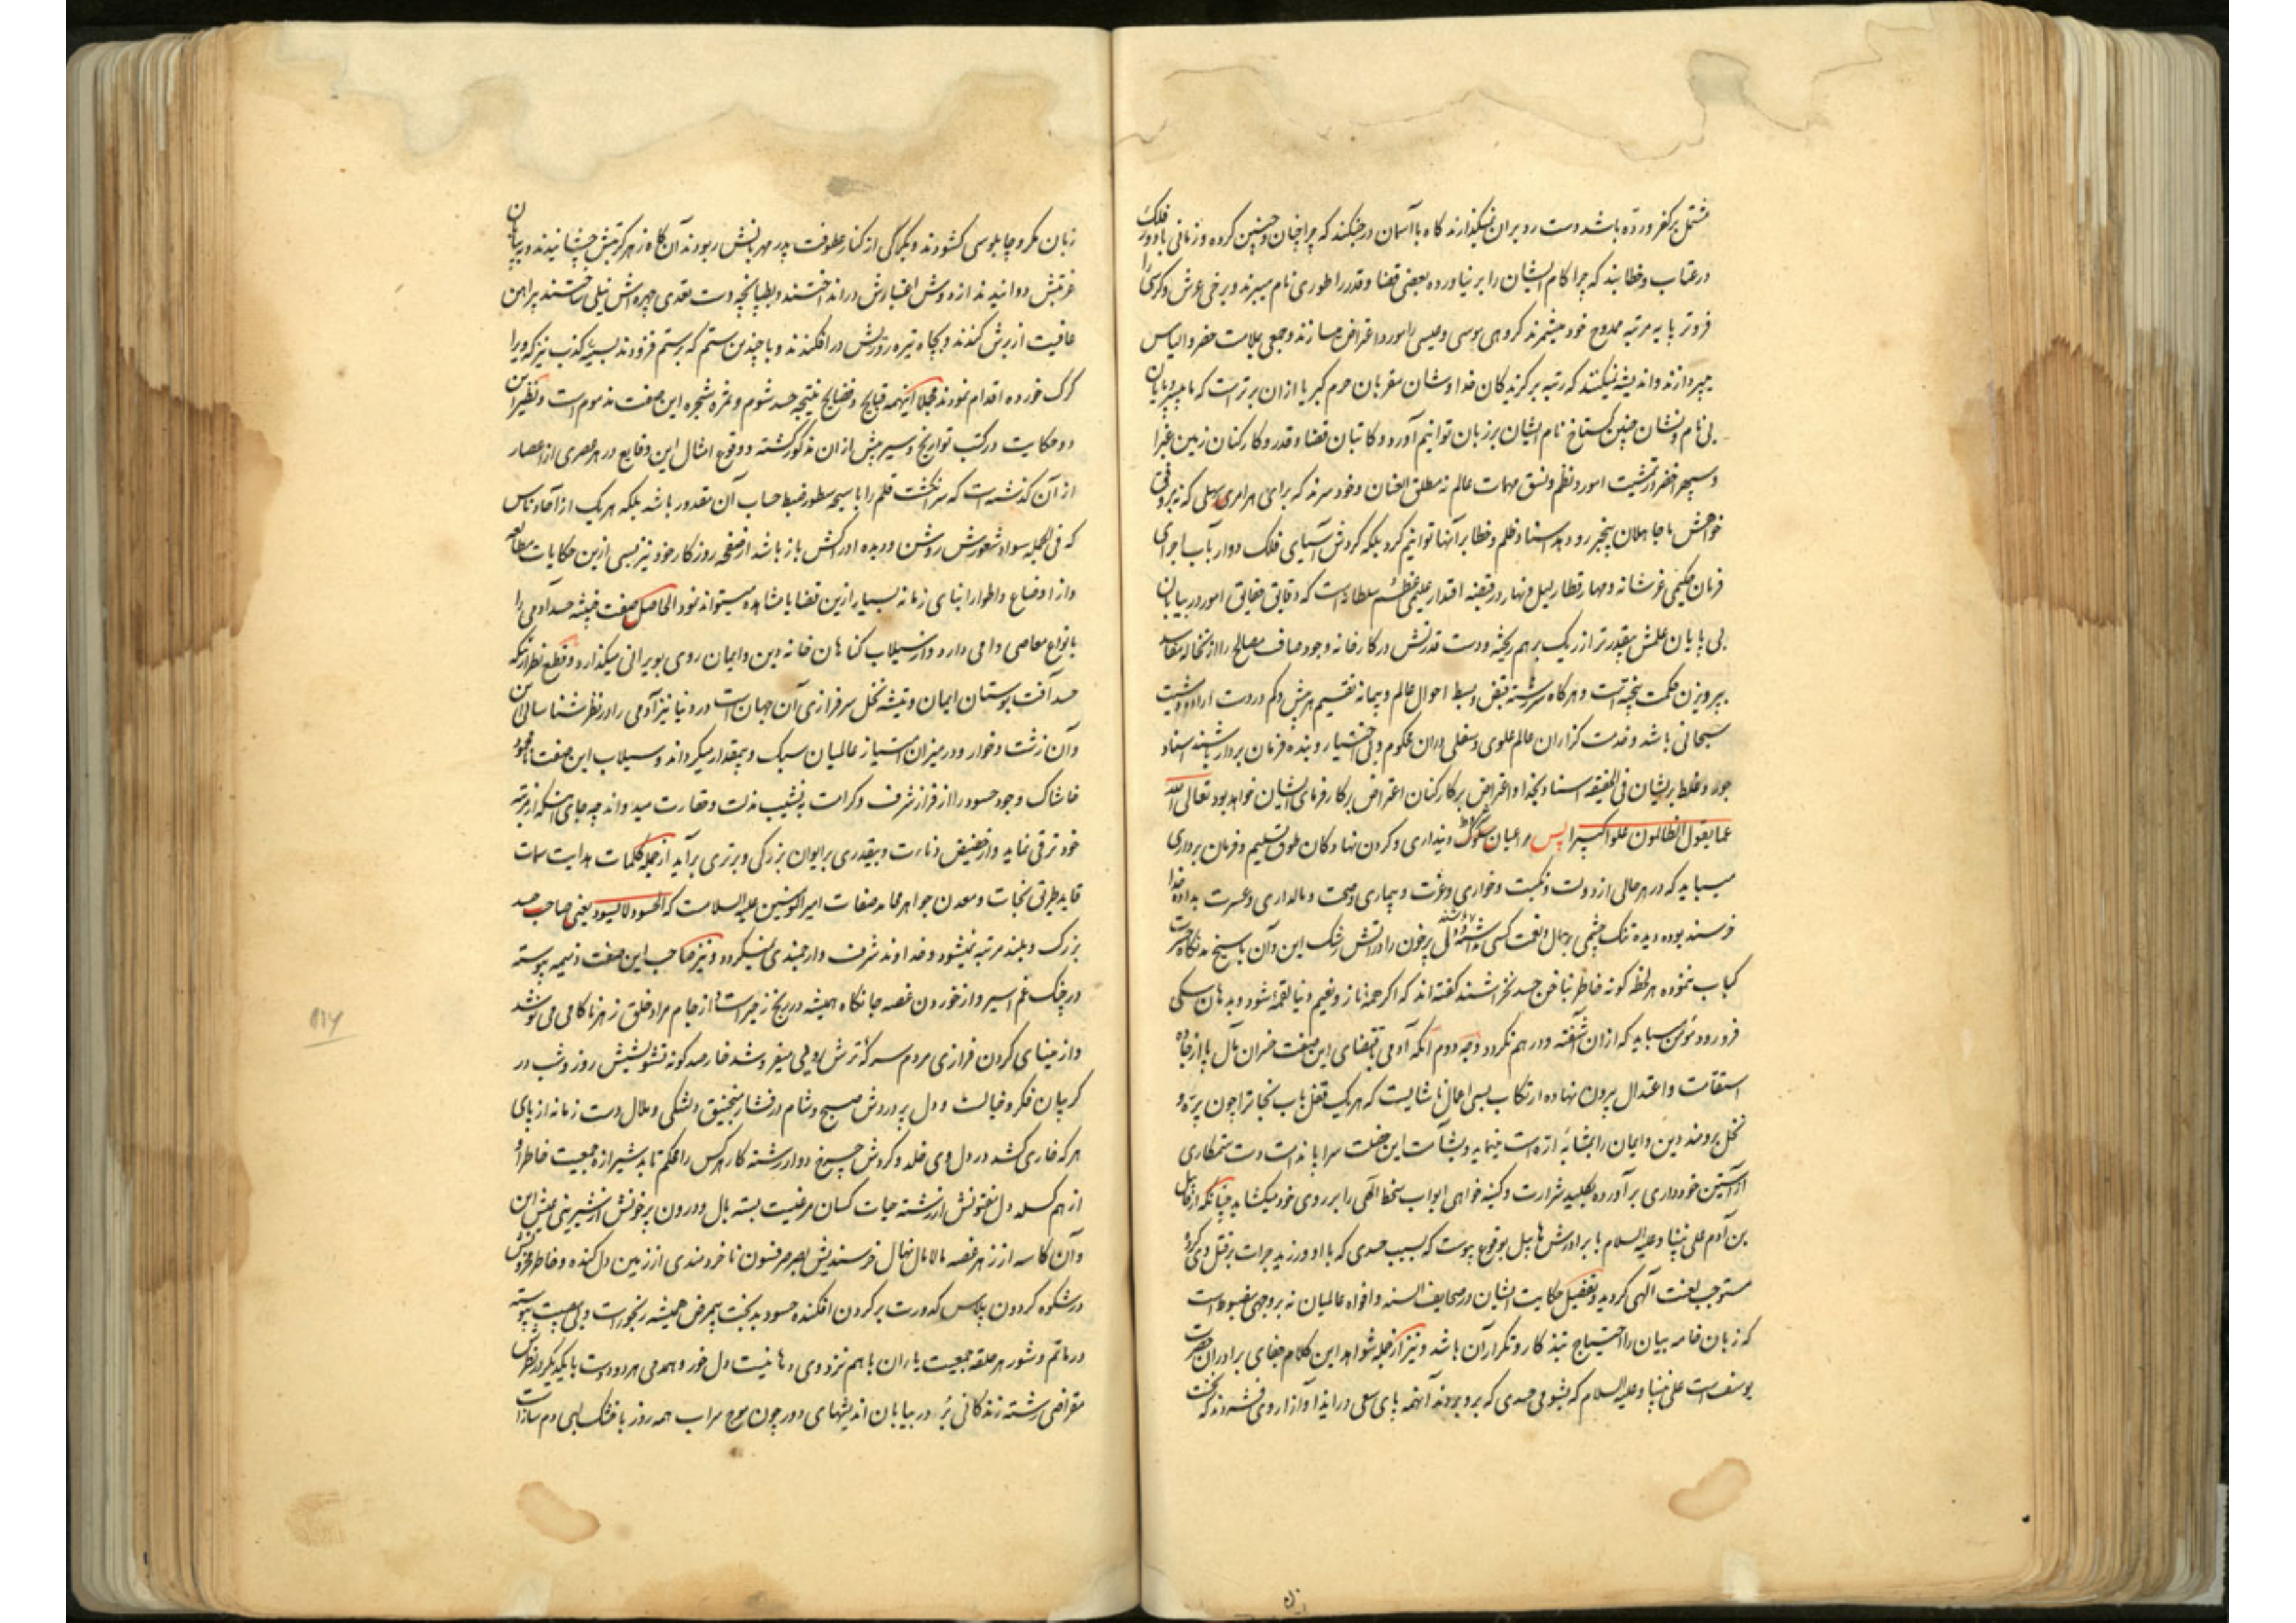 مشتمل بر کفر و ردّه باشد دست رد بر آن نمیگذارند گاه با آسمان در جنگند که چرا چنان و چنین کرده و زمانی با دور فلک
در عتاب و خطابند که چرا کام ایشان را بر نیاورده بعضی قضا و قدر را طوری نام میبرند و برخی عرش و کرسی را
فروتر پایه مرتبه ممدوح خود میشمرند گروهی موسی و عیسی را مورد اعتراض میسازند و جمعی بملامت خضر و الیاس
میپردازند و اندیشه نمیکنند که رتبه برگزیدگان خدا و شان مقربان حرم کبریا از ان برتر است که ما بیسروپایان
بی نام و نشان چنین گستاخ نام ایشان بر زبان توانیم آورد و کاتبان قضا و قدر و کارکنان زمین غبرا
و سپهر اخضر در تمشیت امور و نظم و نسق مهمات عالم نه مطلق العنان و خود سرند که برای هر امری سهلی که نه بر وفق
خواهش ما جاهلان بیخبر رو دهد اسناد ظلم و خطا بر آنها توانیم کرد بلکه گردش آسیای فلک دوار بآب اجرای
فرمان حکیمی عرشانه و مهار قطار لیل و نهار در قبضه اقتدار علیمی عظم سلطانه است که دقایق حقایق امور در بیابان
بی پایان علمش بیقدرتر از ریک بر هم ریخته و دست قدرتش در کارخانه وجود صاف مصالح را از نخاله مفاسد
بپرویزن حکمت بیخته است و هرگاه سررشته قبض و بسط احوال عالم و پیمانه تقسیم هر بیش و کم در دست اراده و مشیت
سبحانی باشد و خدمت گزاران عالم علوی و سفلی در ان محکوم و بی اختیار و بنده فرمان بردار باشند اسناد
جور و غلط بر ایشان فی الحقیقه اسناد بخدا و اعتراض بر کارکنان اعتراض بر کارفرمای ایشان خواهد بود تعالی الله
عما یقول الظالمون علوا کبیرا پس مراعیان سلوک دینداری و گردن نهادگان طوق تسلیم و فرمان برداری
میباید که در هر حالی از دولت و نکبت و خواری و عزت و بیماری و صحت و مالداری و عسرت بداده خدا
خرسند بوده دیده تنک چشمی بر مال و نعمت کسی ندوخته و دل پر خون را در آتش رشک این و آن با سیخ نگاه حسرت
کباب ننموده هر لحظه گونه خاطر بناخن حسد نخراشند گفته اند که اگر همه ناز و نعیم دنیا لقمه شود و بدهان سگی
فرو رود مؤمن میباید که از ان آشفته و در هم نگردد وجه دوم آنکه آدمی بمقتضای این صفت خسران مآل پا از جاده
استقامت و اعتدال بیرون نهاده ارتکاب بسی اعمال ناشایست که هر یک قفل باب نجات را چون پره و
نخل برومند دین و ایمان را بمثابه اره است مینماید و بشآمت این خصلت سراپا مذلت دست ستمکاری
از آستین خودداری بر آورده بکلید شرارت و کینه خواهی ابواب سخط الهی را بر روی خود میکشاید چنانکه از قابیل
بن آدم علی نبینا و علیه السلام با برادرش هابیل بوقوع پیوست که بسبب حسدی که با او ورزید جرات بر قتل وی کرده
مستوجب لعنت الهی گردید و تفصیل حکایت ایشان در صحایف السنه و افواه عالمیان نه بر وجهی مضبوط است
که زبان خامه بیان را احتیاج بتذکار و تکرار آن باشد و نیز از جمله شواهد این کلام جفای برادران حضرت
یوسف است علی نبینا و علیه السلام که بشومی حسدی که برو بردند آنهمه پای سعی در ایذا و آزار وی فشردند که نخست
زبان مکر و چاپلوسی کشودند و بگرگی از کنار عطوفت پدر مهربانش ربودند آن گاه زهر کربتش چشانیدند و در بیابان
غربتش دوانیدند از دوش اعتبارش در انداختند و بطپانچه دست تعدی چهره اش نیلی ساختند پیراهن
عافیت از برش کندند و بچاه تیره روزیش در افکندند و با چندین ستم که بر ستم فزودند بسیه کذب نیز که ویرا
گرگ خورده اقدام نمودند مجملا اینهمه قبایح و فضایح نتیجه حسد شوم و ثمره شجره این صفت مذموم است و نظیر این
دو حکایت در کتب تواریخ و سیر بیش از ان مذکور گشته و وقوع امثال این وقایع در هر عصری از اعصار
از آن گذشته است که سر انگشت قلم را با سبحه سطور ضبط حساب آن مقدور باشد بلکه هر یک از آحاد ناس
که فی الجمله سواد شعورش روشن و دیده ادراکش باز باشد از صفحه روزگار خود نیز بسی ازین حکایات مطالعه
و از اوضاع و اطوار ابنای زمانه بسیار ازین قضایا مشاهده میتواند نمود الحاصل صفت خبیثه حسد آدمی را
بانواع معاصی وا می دارد و از سیلاب گناهان خانه دین و ایمان روی بویرانی میگذارد و قطع نظر از آنکه
حسد آفت بوستان ایمان و تیشه نخل سرفرازی آن جهان است در دنیا نیز آدمی را در نظر شناسائی این
و آن زشت و خوار و در میزان امتیاز عالمیان سبک و بیمقدار میگرداند و سیلاب این صفت نامحمود
خاشاک وجود حسود را از فراز شرف و کرامت به نشیب مذلت و حقارت میدواند چه جای آنکه از مرتبه
خود ترقی نماید و از حضیض دنائت و بیقدری بر ایوان بزرگی و برتری بر آید از جمله کلمات هدایت سمات
قاید طریق نجات و معدن جواهر محامد صفات امیر المؤمنین علیه السلامست که الحسود لایسود یعنی صاحب حسد
بزرگ و بلند مرتبه نمیشود و خداوند شرف و ارجمندی نمیگردد و نیز صاحب این صفت ذمیمه پیوسته
در چنگ غم اسیر و از خوردن غصه جانکاه همیشه در رنج زحیر است از جام مراد خلق زهر ناکامی می نوشد
و از مینای گردن فرازی مردم سرکه ترش رویی میفروشد خار صد گونه تشویشش روز و شب در
گریبان فکر و خیالست و دل پر دردش صبح و شام در فشار منجنیق دلتنگی و ملال دست زمانه از پای
هر که خاری کشد در دل وی خلد و گردش چرخ دوار رشته کار هر کس را محکم تابد شیرازه جمعیت خاطر او
از هم گسلد دل مفتونش از رشته حیات کسان مرغیست بسته بال و درون پر خونش از شیرینی عیش این
و آن کاسه از زهر غصه مالامال نهال خرسندیش بصرصر فسون ناخردمندی از زمین دل کنده و خاطر محزونش
در شکوه گردون پلاس کدورت بر گردن افکنده حسود بدبخت بیمرض همیشه رنجور است و بی مصیبت پیوسته
در ماتم و شور هر حلقه جمعیت یاران با هم نزد وی دهانیست دل خور و همدمی هر دو دست با یکدیگر در نظرش
مقراضی رشته زندگانی بر در بیابان اندیشهای دور چون موج سراب همه روز با خشک لبی دم ساز است